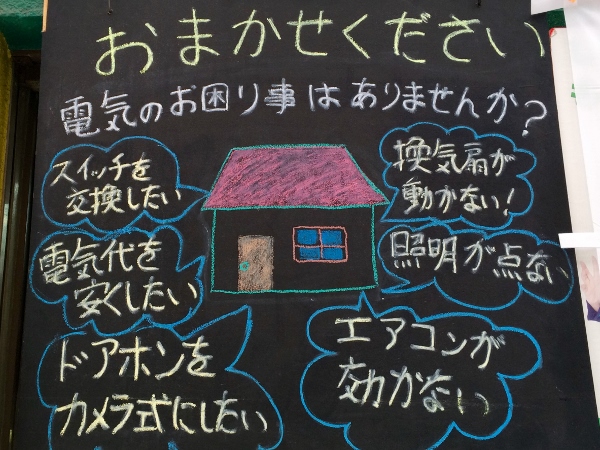 おまかせください
電気のお困り事はありませんか?
スイッチを
交換したい
換気扇が
動かない!
電気代を
安くしたい
照明が点ない
ドアホンを
カメラ式にしたい
エアコンが
効かない